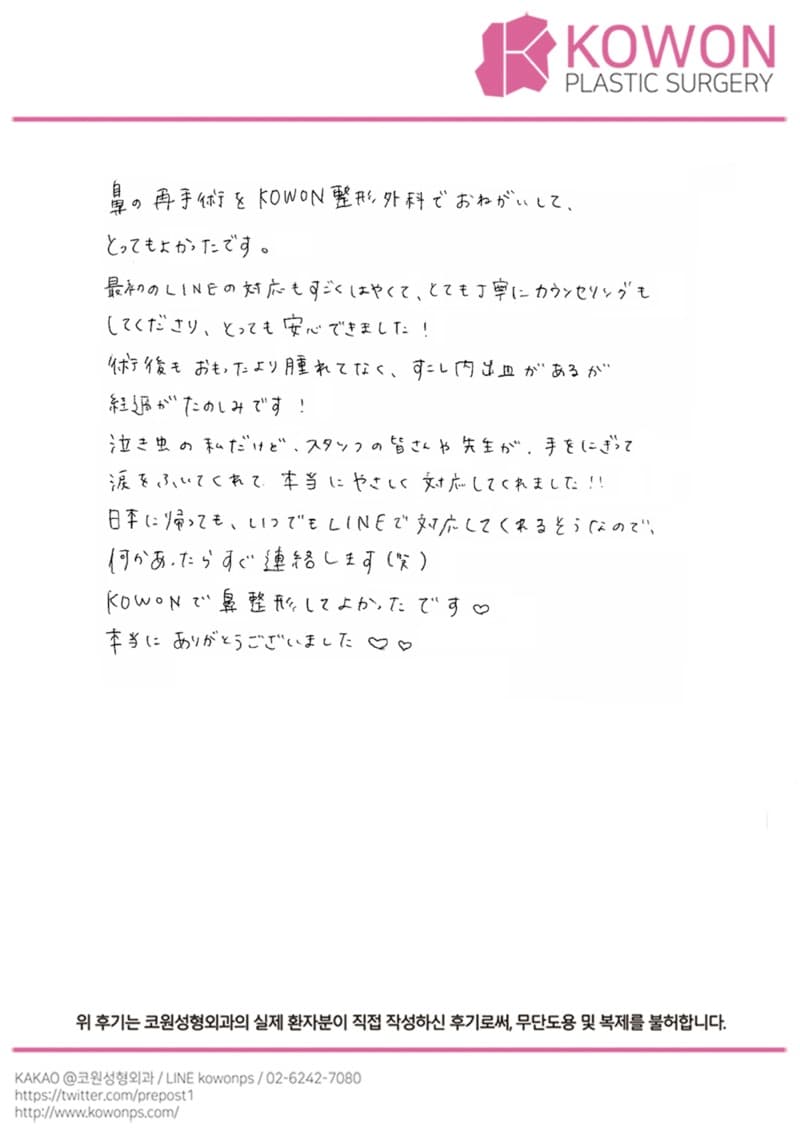 KOWON
PLASTIC SURGERY
鼻の再手術をKOWON整形外科でおねがいして、
とってもよかったです。
最初のLINEの対応もすごくはやくて、とても丁寧にカウンセリングも
してくださり、とっても安心できました!
術後もおもったより腫れてなく、すこし内出血があるが
経過がたのしみです!
泣き虫の私だけど、スタッフの皆さんや先生が、手をにぎって
涙をふいてくれて本当にやさしく対応してくれました!!
日本に帰っても、いつでもLINEで対応してくれるそうなので、
何かあったらすぐ連絡します(笑)
KOWONで鼻整形してよかったです♡
本当にありがとうございました♡♡
위 후기는 코원성형외과의 실제 환자분이 직접 작성하신 후기로써, 무단도용 및 복제를 불허합니다.
KAKAO @코원성형외과 / LINE kowonps / 02-6242-7080
https://twitter.com/prepost1
http://www.kowonps.com/